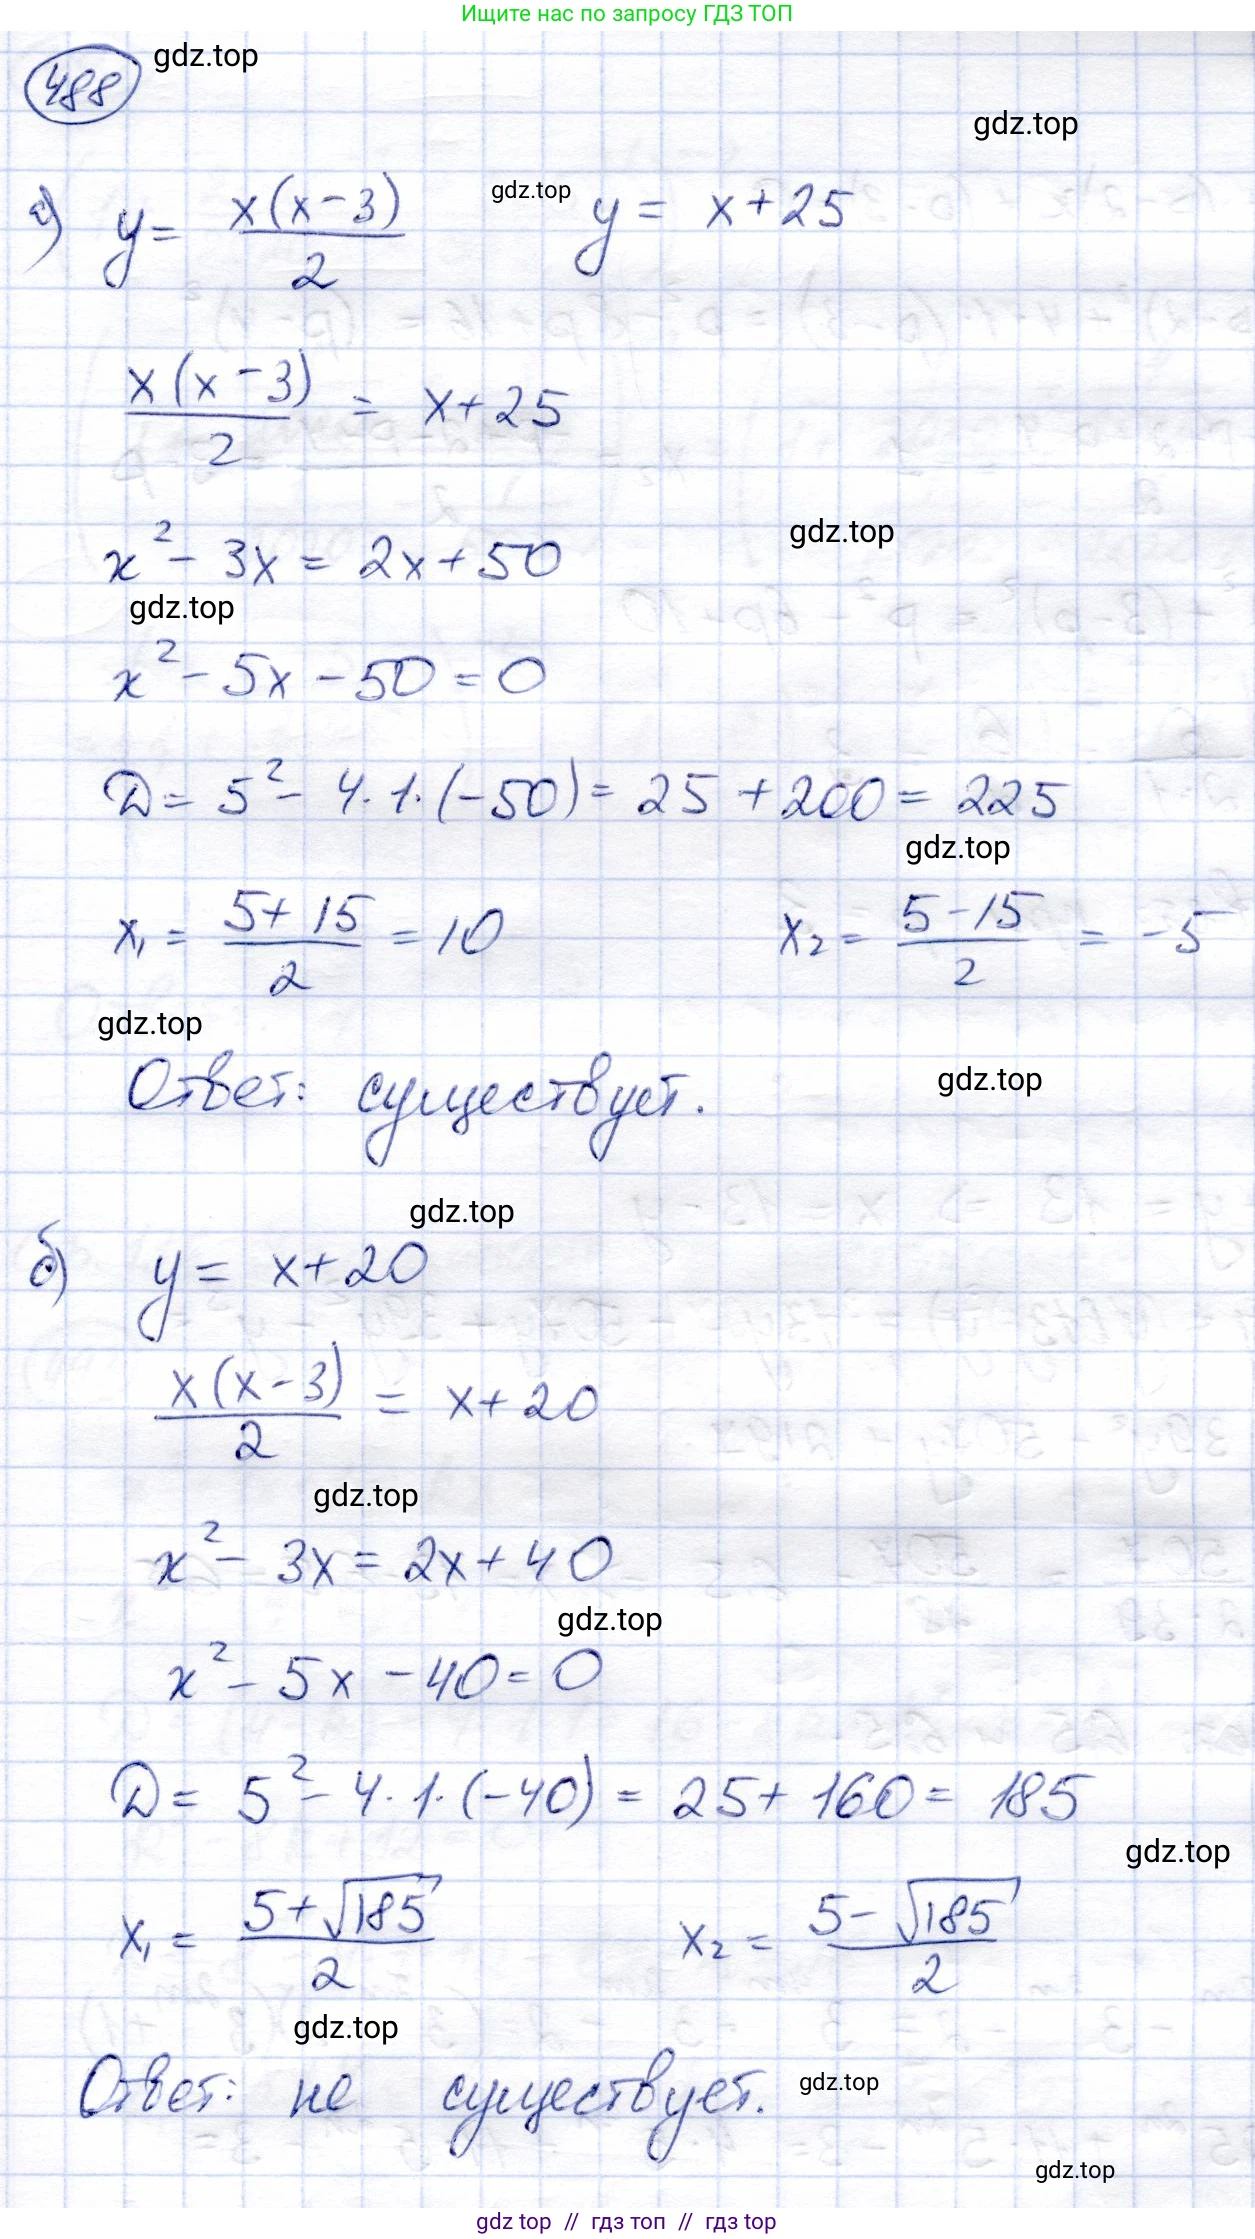 Ищите нас по запросу ГДЗ ТОП
488
gdz.top
gdz.top
а) y = x(x-3)/2 gdz.top y = x+25
x(x-3)/2 = x+25
gdz.top
x² - 3x = 2x+50
gdz.top
x² - 5x - 50 = 0
D = 5² - 4·1·(-50) = 25 + 200 = 225
gdz.top
x₁ = (5+15)/2 = 10 x₂ = (5-15)/2 = -5
gdz.top
Ответ: существует.
gdz.top
gdz.top
б) y = x+20
x(x-3)/2 = x+20
gdz.top
x² - 3x = 2x+40
gdz.top
x² - 5x - 40 = 0
D = 5² - 4·1·(-40) = 25+160 = 185
gdz.top
x₁ = (5+√185)/2 x₂ = (5-√185)/2
gdz.top
Ответ: не существует.
gdz.top
gdz.top
gdz top // гдз топ // гдз top